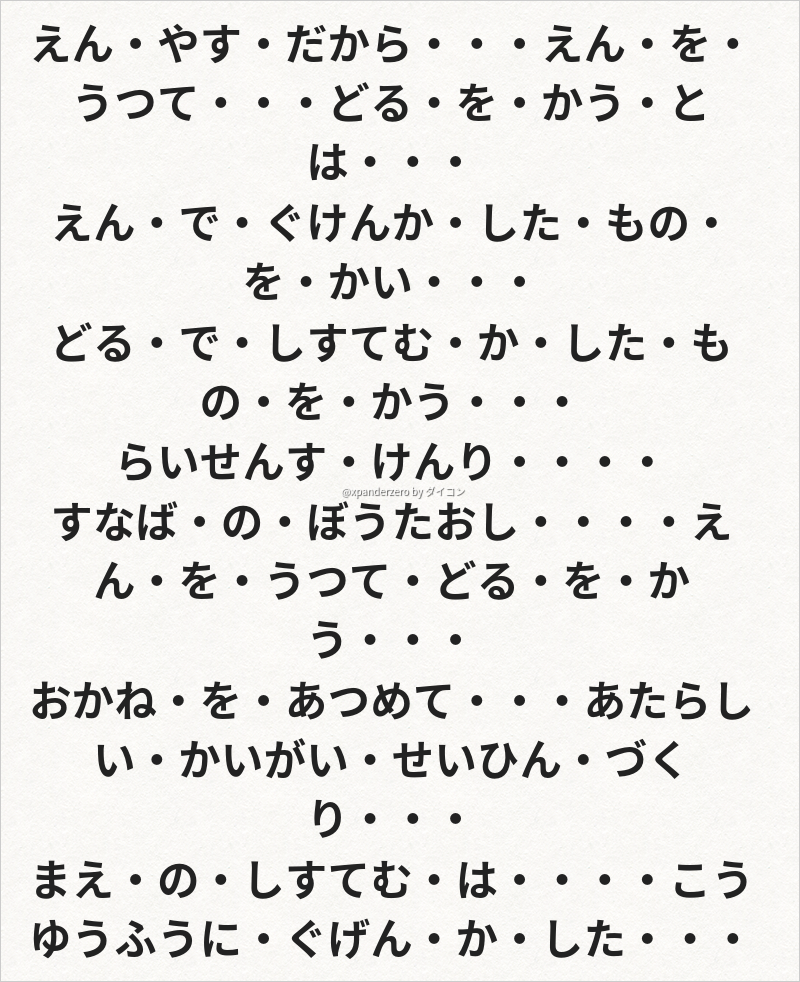 えん・やす・だから・・・えん・を・
うつて・・・どる・を・かう・と
は・・・
えん・で・ぐけんか・した・もの・
を・かい・・・
どる・で・しすてむ・か・した・も
の・を・かう・・・
らいせんす・けんり・・・・
@xpanderzero by ダイコン
すなば・の・ぼうたおし・・・・え
ん・を・うつて・どる・を・か
う・・・
おかね・を・あつめて・・・あたらし
い・かいがい・せいひん・づく
り・・・
まえ・の・しすてむ・は・・・・こう
ゆうふうに・ぐげん・か・した・・・